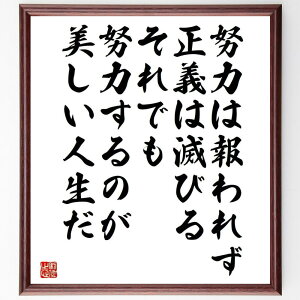 努力は報われず
正義は滅びる
それでも
努力するのが
美しい人生だ